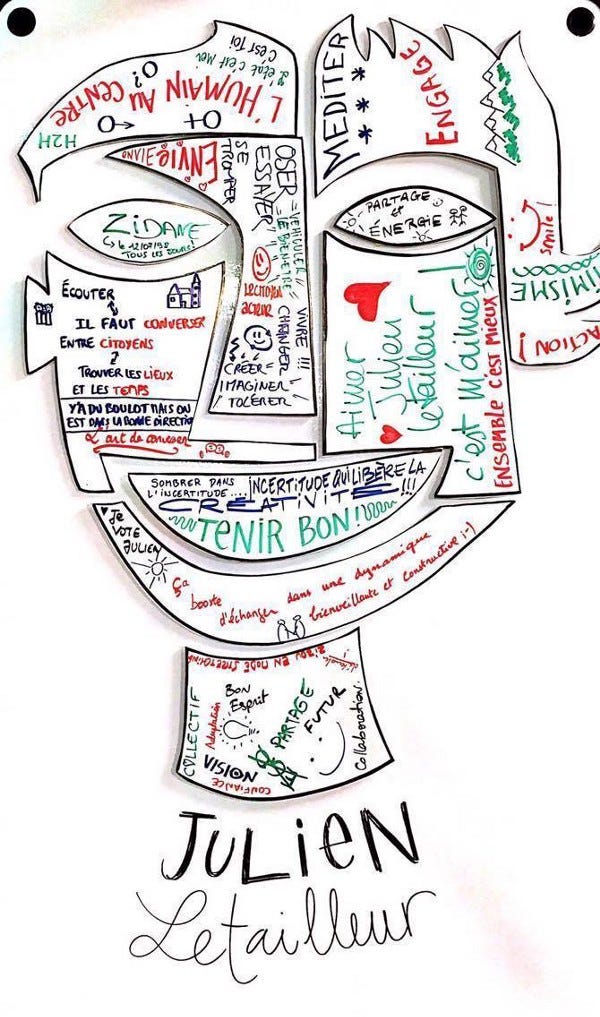 L'état c'est moi
C'EST TOI
L'HUMAIN AU CENTRE
H2H
MEDITER
ENGAGE
ENVIE
ENVIE
OSER
ESSAYER
SE
TROMPER
VIVRE !!!
CHANGER
CRÉER =
IMAGINER
TOLÉRER
ZIDANE
TOUS LES JOURS!
PARTAGE
et
ÉNERGIE
smile!
TIMISME
ACTION!
ÉCOUTER
IL FAUT CONVERSER
ENTRE CITOYENS
TROUVER LES LIEUX
ET LES TEMPS
Y'A DU BOULOT MAIS ON
EST DANS LA BONNE DIRECTIO
L'art de converser
Aimer
Julien
Letailleur
c'est m'aimer!
ENSEMBLE C'EST MIEUX
SOMBRER DANS
L'INCERTITUDE....
INCERTITUDE QUI LIBÈRE LA
CRÉATIVITÉ!!!
TENIR BON!
Je
VOTE
JULIEN
Ça
booste
d'échanger dans une dynamique
bienveillante et constructive ;-)
COLLECTIF
Adaptation
BON
Esprit
VISION
CONFIANCE
PARTAGE
FUTUR
Collaboration
JULIEN
Letailleur